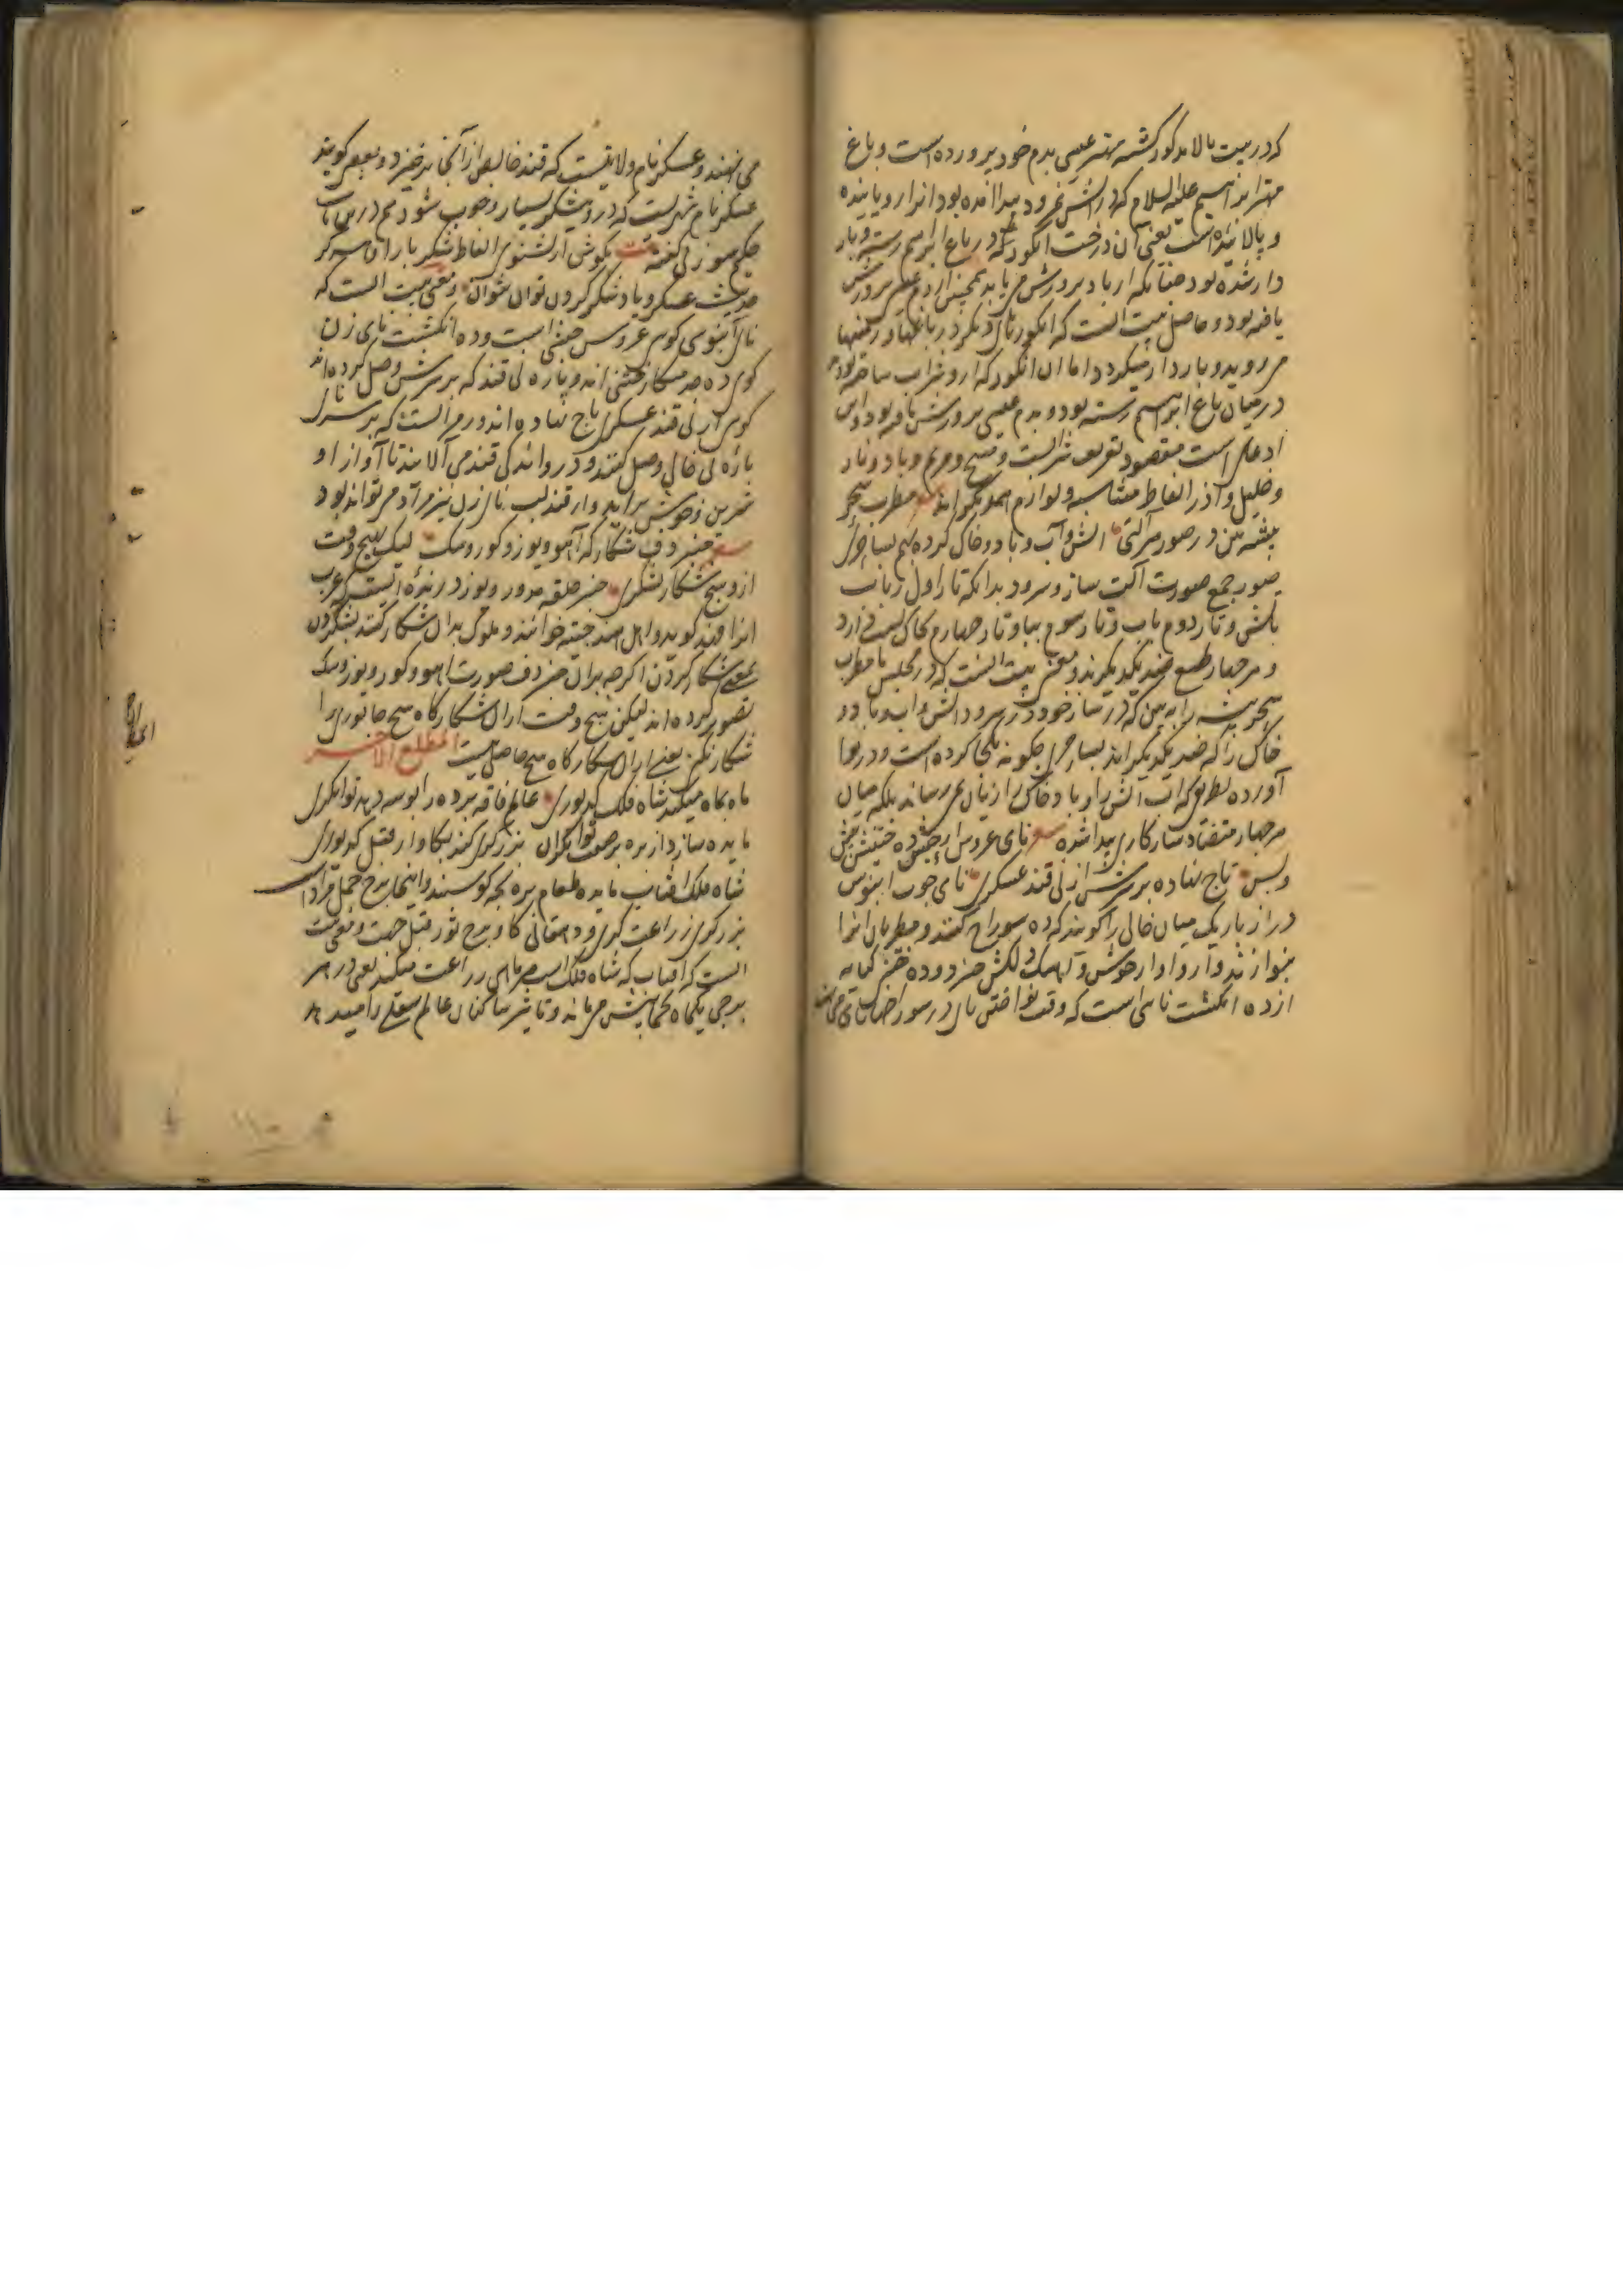 که در بیت بالا مذکور گشته مهتر عیسی بدم خود پرورده است و باغ
مهتر ابراهیم علیه السلام که در آتش نمرود پیدا آمده بود آنرا رویانیده
و بالانیده است یعنی آن درخت انگور که در باغ ابراهیم رسته و بار
دار شده بود چنانکه از باد پرورش می یابد همچنین از دم عیسی پرورش
یافته بود و حاصل بیت آنست که انگورهای دیگر در باغها و
می روید و باردار میگردد اما آن انگور که ازو شراب ساخته بودم
در میان باغ ابراهیم رسته بود و بدم عیسی پرورش یافته بود و این
ادعای است مقصود تعریف شرابست و مسیح و مریم و باد و نار
و خلیل و آذر الفاظ متناسبه و لوازم همدیگراند مطرب سحر
پیشه بین در صور هر آلتی آتش و آب و باد و خاک کرده بهم بساحری
صور جمع صورت آلت ساز و سرود بدانکه تار اول رباب
باتش و تار دوم باب و تار سوم بباد و تار چهارم بخاک نسبت دارد
و هر چهار طبع ضد یکدیگرند و معنی بیت آنست که در مجلس ما مطرب
سحر پیشه را به بین که در ساز خود در سرود آتش و آب و باد و
خاک را که ضد یکدیگراند بساحری چگونه یکجا کرده است و در نوا
آورده بطریق که آب آتش را و باد و خاک را زیان نمی رساند بلکه میان
هر چهار متضاد سازگاری پیدا شده نای عروسی از حبش ده ختنیش پیش
و پس تاج نهاده بر سرش از نی قند عسکری نای چوب آبنوس
دراز باریک میان خالی را گویند که ده سوراخ کنند و مطربان آنرا
بنوازند و آواز خوش و آهنگ دلکش خیزد و ده ختنی کنایه
از ده انگشت نائی است که وقت نواختن نای در سوراخهای نای می
می نهند و عسکر نام ولایتیست که قند خالص از آنجا برخیزد و بعضی گویند
عسکر نام شهریست که درو نیشکر بسیار و خوب شود هم درین باب
حکیم سوزنی گفته بیت بگوش ار بشنوی الفاظ شکر بار او
حدیث عسکر و یاد شکر کردن توان نتوان و معنی بیت آنست که
نای آبنوسی گوی عروس حبشی است و ده انگشت نای زن
گوی ده خدمتکار ختنی اند و پاره نی قند که بر سرش وصل کرده اند
گوی از نی قند عسکری تاج نهاده اند و رسم آنست که بر سر نای
پاره نی خالی وصل کنند و در وائدکی قند می آلایند تا آواز او
شیرین و خوش براید و از قند لب نای زن نیز مراد می تواند بود
چنبر دف شکارگه آهو و یوز و گور و سگ لیک بهیچ وقت
ازو هیچ شکار نشکری چنبر حلقه مدور و یوز درنده ایست که عرب
آنرا فهد گوید و اهل هند چیته خوانند و ملوک بدان شکار کنند بشکردن
بمعنی شکار کردن اگرچه بران چنبر دف صورت آهو و گور و یوز و سگ
تصویر کرده اند لیکن هیچ وقت از آن شکارگاه هیچ جانوری را
شکار نکنی یعنی از آن شکارگاه هیچ حاصل نیست المطلع الاخر
ماه بماه میکند شاه فلک کدیوری عالم فاقه برده را توشه دهد توانگری
مایده سازد از بره بر صفت توانگران بزرگری کند بگاو از قبل کدیوری
شاه فلک آفتاب مایده طعام بره بچه گوسپند و اینجا برج حمل مراد است
بزرگری زراعت گری و دهقانی گاو برج ثور قبل جهت و معنی بیت
آنست که آفتاب که شاه فلک است هر ماهی زراعت میکند یعنی در هر
برجی یکماه می ماند و تاثیر ساکنان عالم سفلی را میدهد